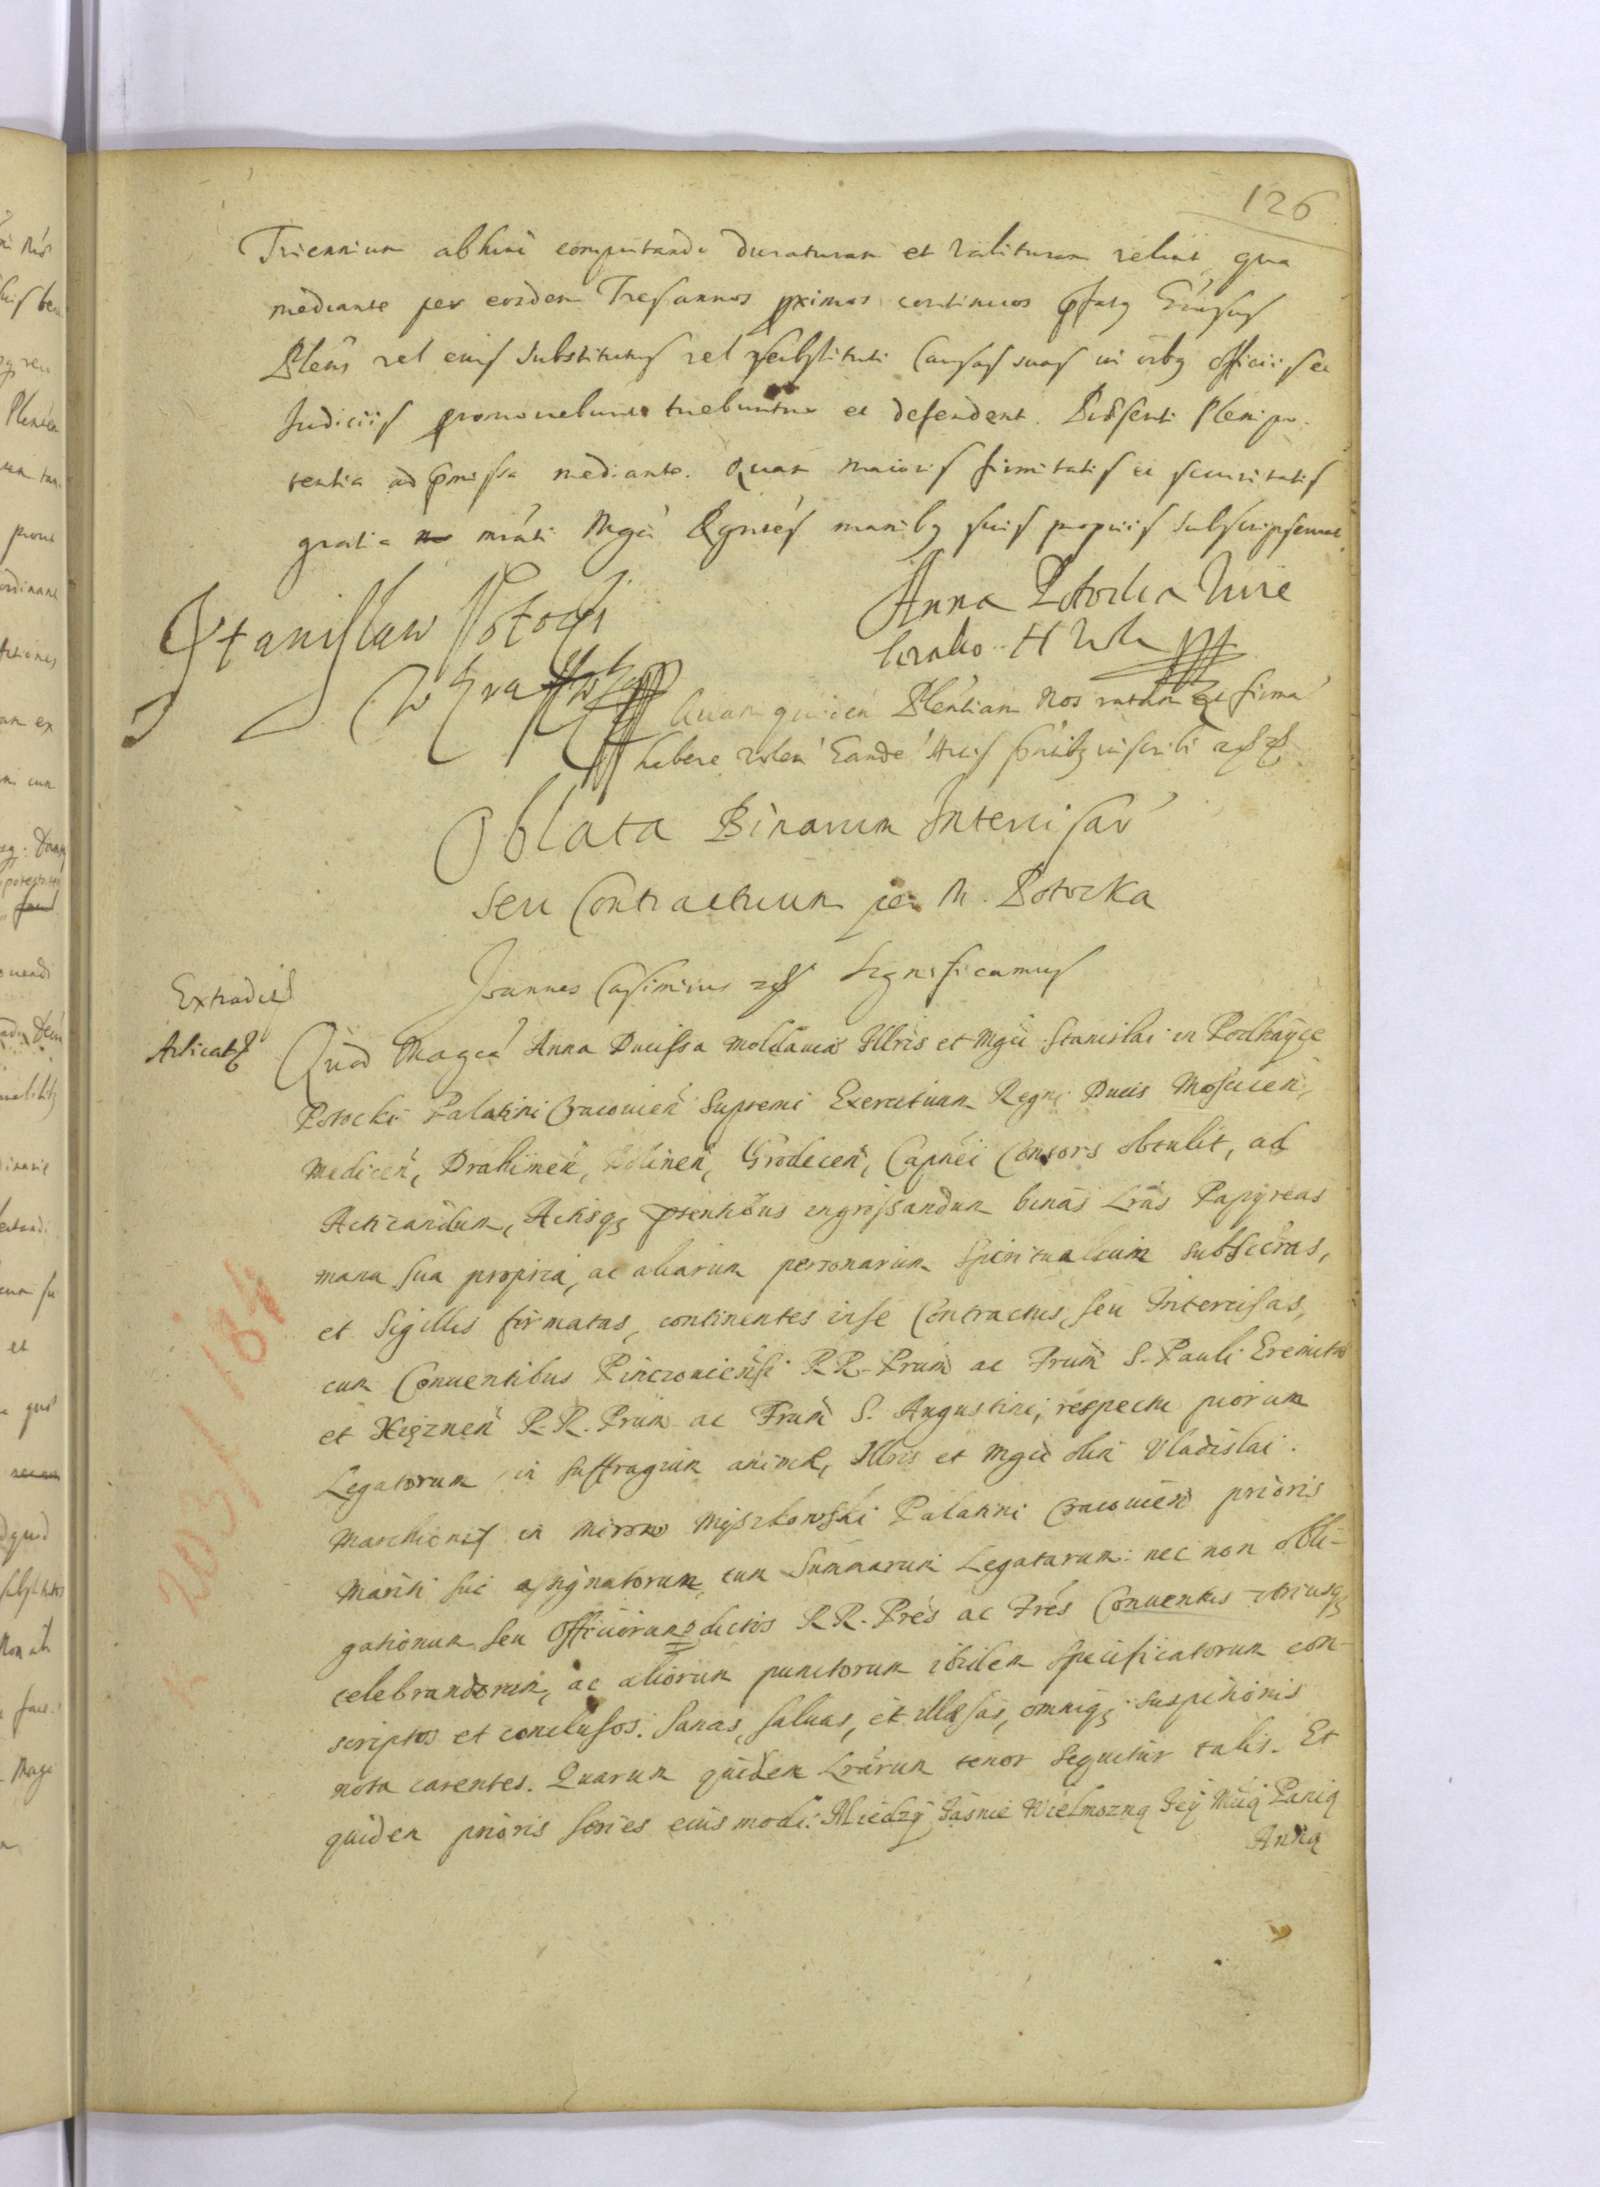 126
Triennium abhinc computando duraturam et valituram relinet qua
mediante per eosdem Tres annos proximos continuos
Plens vel eius substitutus vel substituti Causas suas in officiis et
Judiciis promovebunt tuebuntur et defendent. Plenipo-
tentia ad mediante. Quam maioris firmitatis et securitatis
gratia manibq suis propriis subscripserunt
Stanislaw Potocki
Anna Potocka
Quam quidem Plentiam nos ratam et firma
habere
Oblata Binarum Intercisar
seu Contractuum per M. Potocka
Joannes Casimirus Significamus
Extradit
Acticat
Quod Magca Anna Ducissa Moldauiae Illris et Mgci Stanislai in Podhayce
Potocki Palatini Cracouien Supremi Exercituum Regni Ducis Moscicen,
Medicen, Drahimen, Grodecen, Capnei Consors obtulit, ad
Acticandum, Actisq; pntibus ingrossandum binas Lras Papyreas
manu sua propria, ac aliarum personarum Spiritualium subscras,
et Sigillis firmatas, continentes in se Contractus, seu Intercisas,
cum Conuentibus Pinczouiensi RR. Prum ac Frum S. Pauli Eremitae
et Xięznen R.R. Prum ac Frum S. Augustini, respectu piorum
Legatorum in suffragium animae, Illris et Mgci olim Vladislai
Marchionis in Mirow Myszkowski Palatini Cracouien prioris
Mariti sui assignatorum, cum Summarum Legatarum: nec non obli-
gationum seu Officiorum dictos RR. Pres ac Fres Conuentus utriusq;
celebrandorum, ac aliorum punctorum ibidem specificatorum con-
scriptos et conclusos. Sanas, saluas, et illaesas, omniq; suspitionis
nota carentes. Quarum quidem Lrarum tenor sequitur talis. Et
quidem prioris series eiusmodi: Między Jaśnie Wielmozną Jey Mcią Panią
Anną
203/184